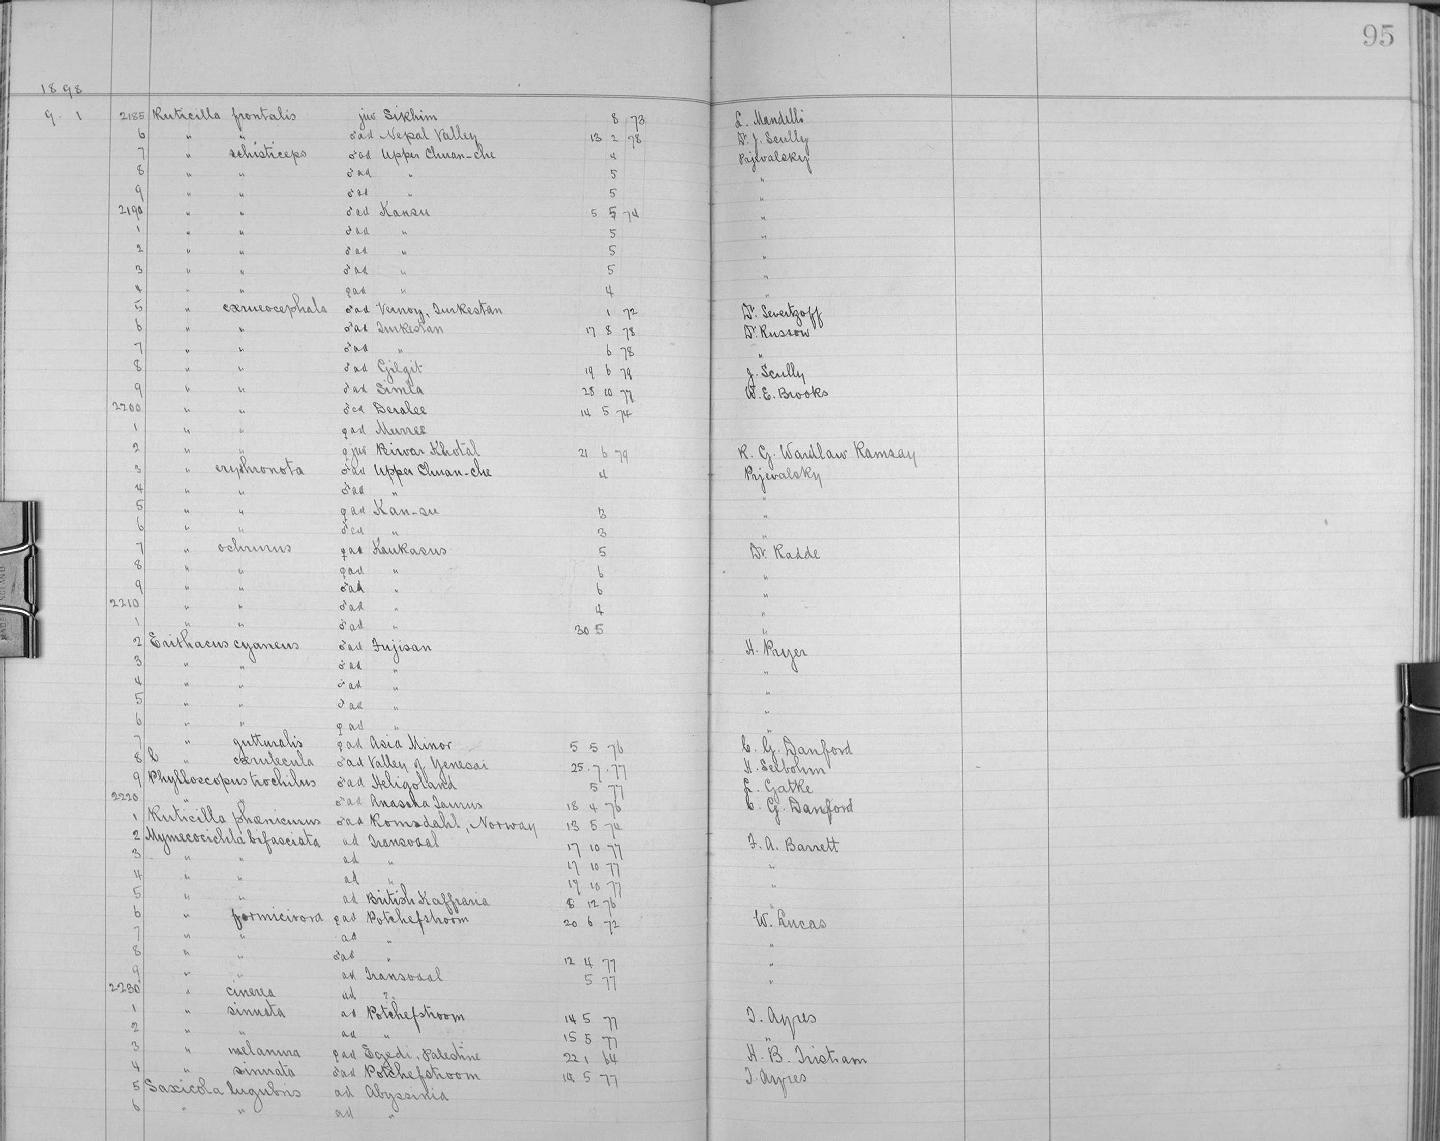 95
1898
9 1 2185 Ruticilla frontalis juv Sikhim 8 73 L. Mandelli
6 " " ♂ad Nepal Valley 13 2 78 Dr. J. Scully
7 " schisticeps ♂ad Upper Chuan-che 4 Prjevalsky
8 " " ♂ad " 5 "
9 " " ♂ad " 5 "
2190 " " ♂ad Kansu 5 5 74 "
1 " " ♂ad " 5 "
2 " " ♂ad " 5 "
3 " " ♂ad " 5 "
4 " " ♀ad " 4 "
5 " cæruleocephala ♂ad Vernoy, Turkestan 1 72 Dr. Severtzoff
6 " " ♂ad Turkestan 17 8 78 Dr. Russow
7 " " ♂ad " 6 78 "
8 " " ♂ad Gilgit 19 6 79 J. Scully
9 " " ♂ad Simla 28 10 77 W. E. Brooks
2200 " " ♂ad Deralee 14 5 74
1 " " ♀ad Murree
2 " " ♀juv Peiwar Khotal 21 6 79 R. G. Wardlaw Ramsay
3 " erythronota ♂ad Upper Chuan-che 4 Prjevalsky
4 " " ♂ad " "
5 " " ♀ad Kan-su 3 "
6 " " ♂ad " 3 "
7 " ochrurus ♀ad Kaukasus 5 Dr. Radde
8 " " ♀ad " 6 "
9 " " ♂ad " 6 "
2210 " " ♂ad " 4 "
1 " " ♂ad " 30 5 "
2 Erithacus cyaneus ♂ad Fujisan H. Pryer
3 " " ♂ad " "
4 " " ♂ad " "
5 " " ♂ad " "
6 " " ♀ad " "
7 " gutturalis ♀ad Asia Minor 5 5 76 C. G. Danford
8 " cærulecula ♂ad Valley of Yenesai 25 7 77 H. Seebohm
9 Phylloscopus trochilus ♂ad Heligoland 5 77 L. Gatke
2220 " ♂ad Anascha Taurus 18 4 76 C. G. Danford
1 Ruticilla phœnicurus ♂ad Romsdahl, Norway 13 5 74
2 Mymecocichla bifasciata ad Transvaal 17 10 77 F. A. Barrett
3 " " ad " 17 10 77 "
4 " " ad " 17 10 77 "
5 " " ad British Kaffraria 8 12 76 "
6 " formicivora ♀ad Potchefstroom 20 6 72 W. Lucas
7 " " ad " "
8 " " ♂ad " 12 4 77 "
9 " " ad Transvaal 5 77 "
2230 " cinerea ad ?
1 " sinuata ad Potchefstroom 14 5 77 T. Ayres
2 " " ad " 15 5 77 "
3 " melanura ♀ad Sgedi, Palestine 22 1 64 H. B. Tristram
4 " sinuata ♂ad Potchefstroom 14 5 77 T. Ayres
5 Saxicola lugubris ad Abyssinia
6 " " ad "